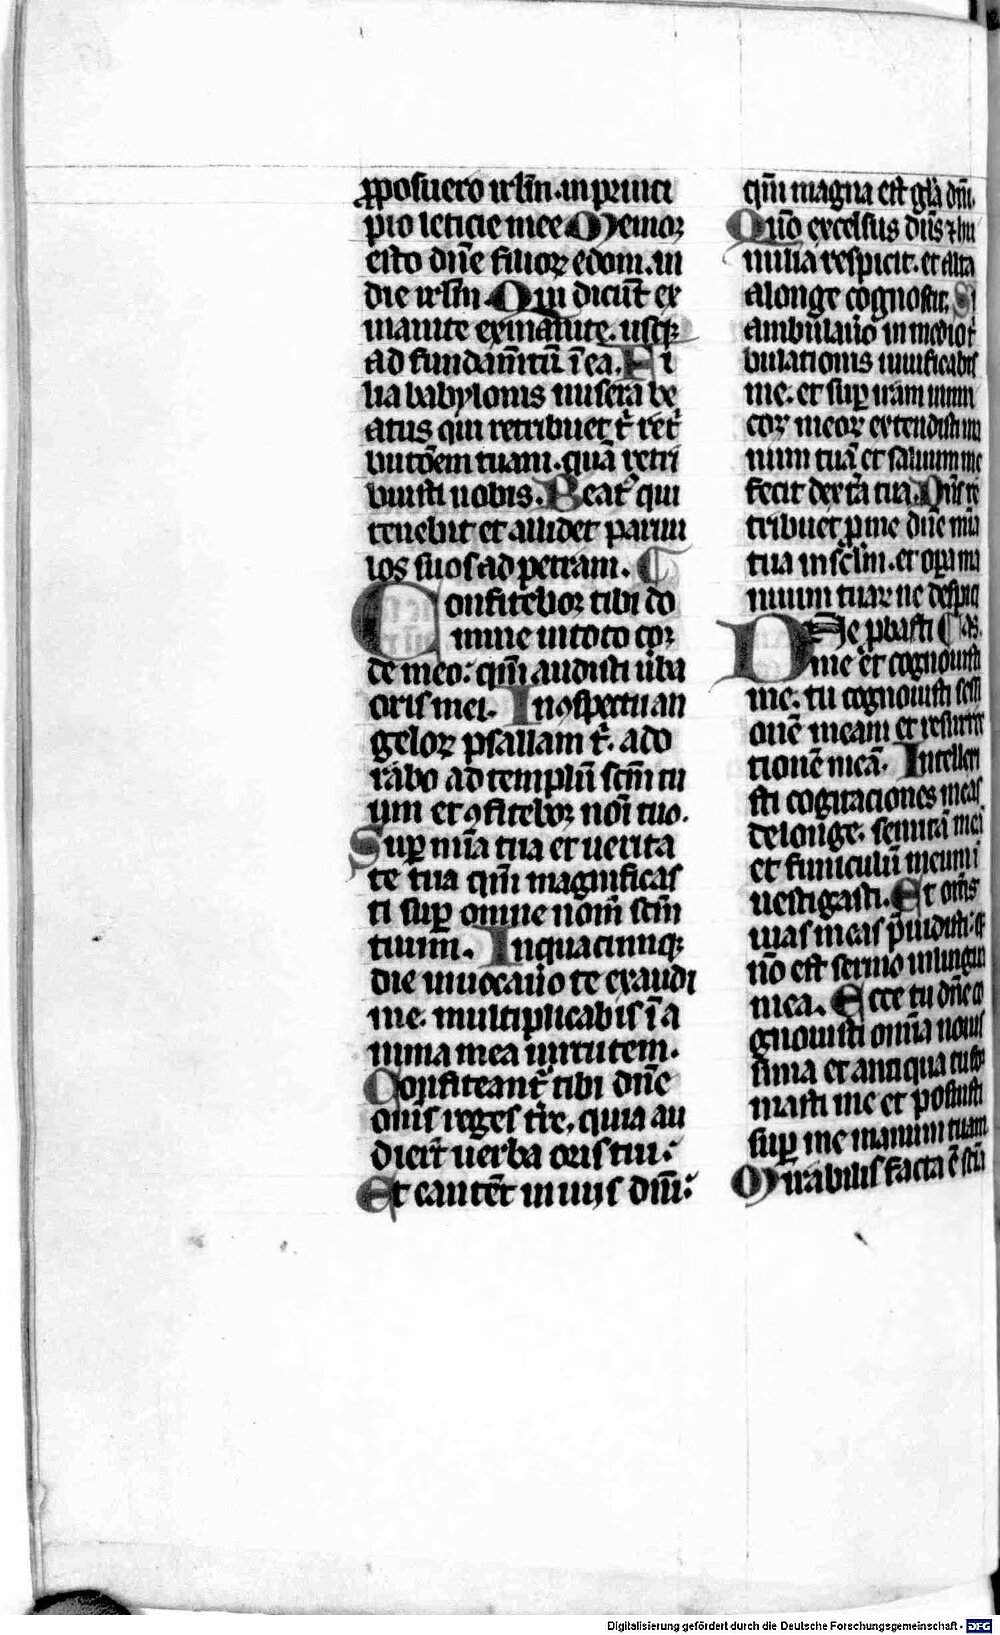 ꝓposuero irlm̄. in princi
pio leticie mee Memoꝛ
esto dn̄e filioꝝ edom. in
die irlm̄. Qui dicūt ex
inanite exinanite. usqꝫ
ad fundam̄tū ī ea. Fi
lia babylonis misera be
atus qui retribuet t̄ ret̄
butōem tuam. quā retri
buisti nobis. Beatꝰ qui
tenebit et allidet paruu
los suos ad petram.
Confiteboꝛ tibi do
mine in toto coꝛ
de meo: qm̄ audisti ūba
oris mei. In ꝯspectu an
geloꝝ psallam t̄. ado
rabo ad templū scm̄ tu
um et ꝯfiteboꝛ noī tuo.
Sup̲ mīa tua et uerita
te tua qm̄ magnificas
ti sup̲ omne nom̄ scm̄
tuum. In quacumqꝫ
die inuocau̇o te exaudi
me. multiplicabis ī a
nima mea uirtutem.
Confiteant᷑ tibi dn̄e
om̄s reges tr̄e. quia au
dier̄t uerba oris tui:
Et cantēt in uijs dn̄i:
qm̄ magna est gl̄a dn̄i.
Qm̄ excelsus dn̄s ⁊ hu
milia respicit. et alta
a longe cognoscit. Si
ambulau̇o in medio t̄
bulationis uiuificabis
me. et sup̲ iram inimi
coꝝ meoꝝ extendisti ma
num tuā et saluum me
fecit dext̄a tua. Dn̄s re
tribuet p̲ me dn̄e mīa
tua in sclm̄. et op̲a ma
nuum tuaꝝ ne despic
Dn̄e p̲basti as.
me et cognouisti
me: tu cognouisti sessi
onē meam et resurre
tionē meā. Intellexi
sti cogitaciones meas
de longe: semitā meā
et funiculū meum ī
uestigasti. Et om̄s
uias meas p̄uidisti: q̄
nō est sermo in lingua
mea. Ecce tu dn̄e co
gnouisti omīa nouis
sima et antiqua tu foꝛ
masti me et posuisti
sup̲ me manum tuam
Mirabilis facta ē scīa
Digitalisierung gefördert durch die Deutsche Forschungsgemeinschaft - DFG